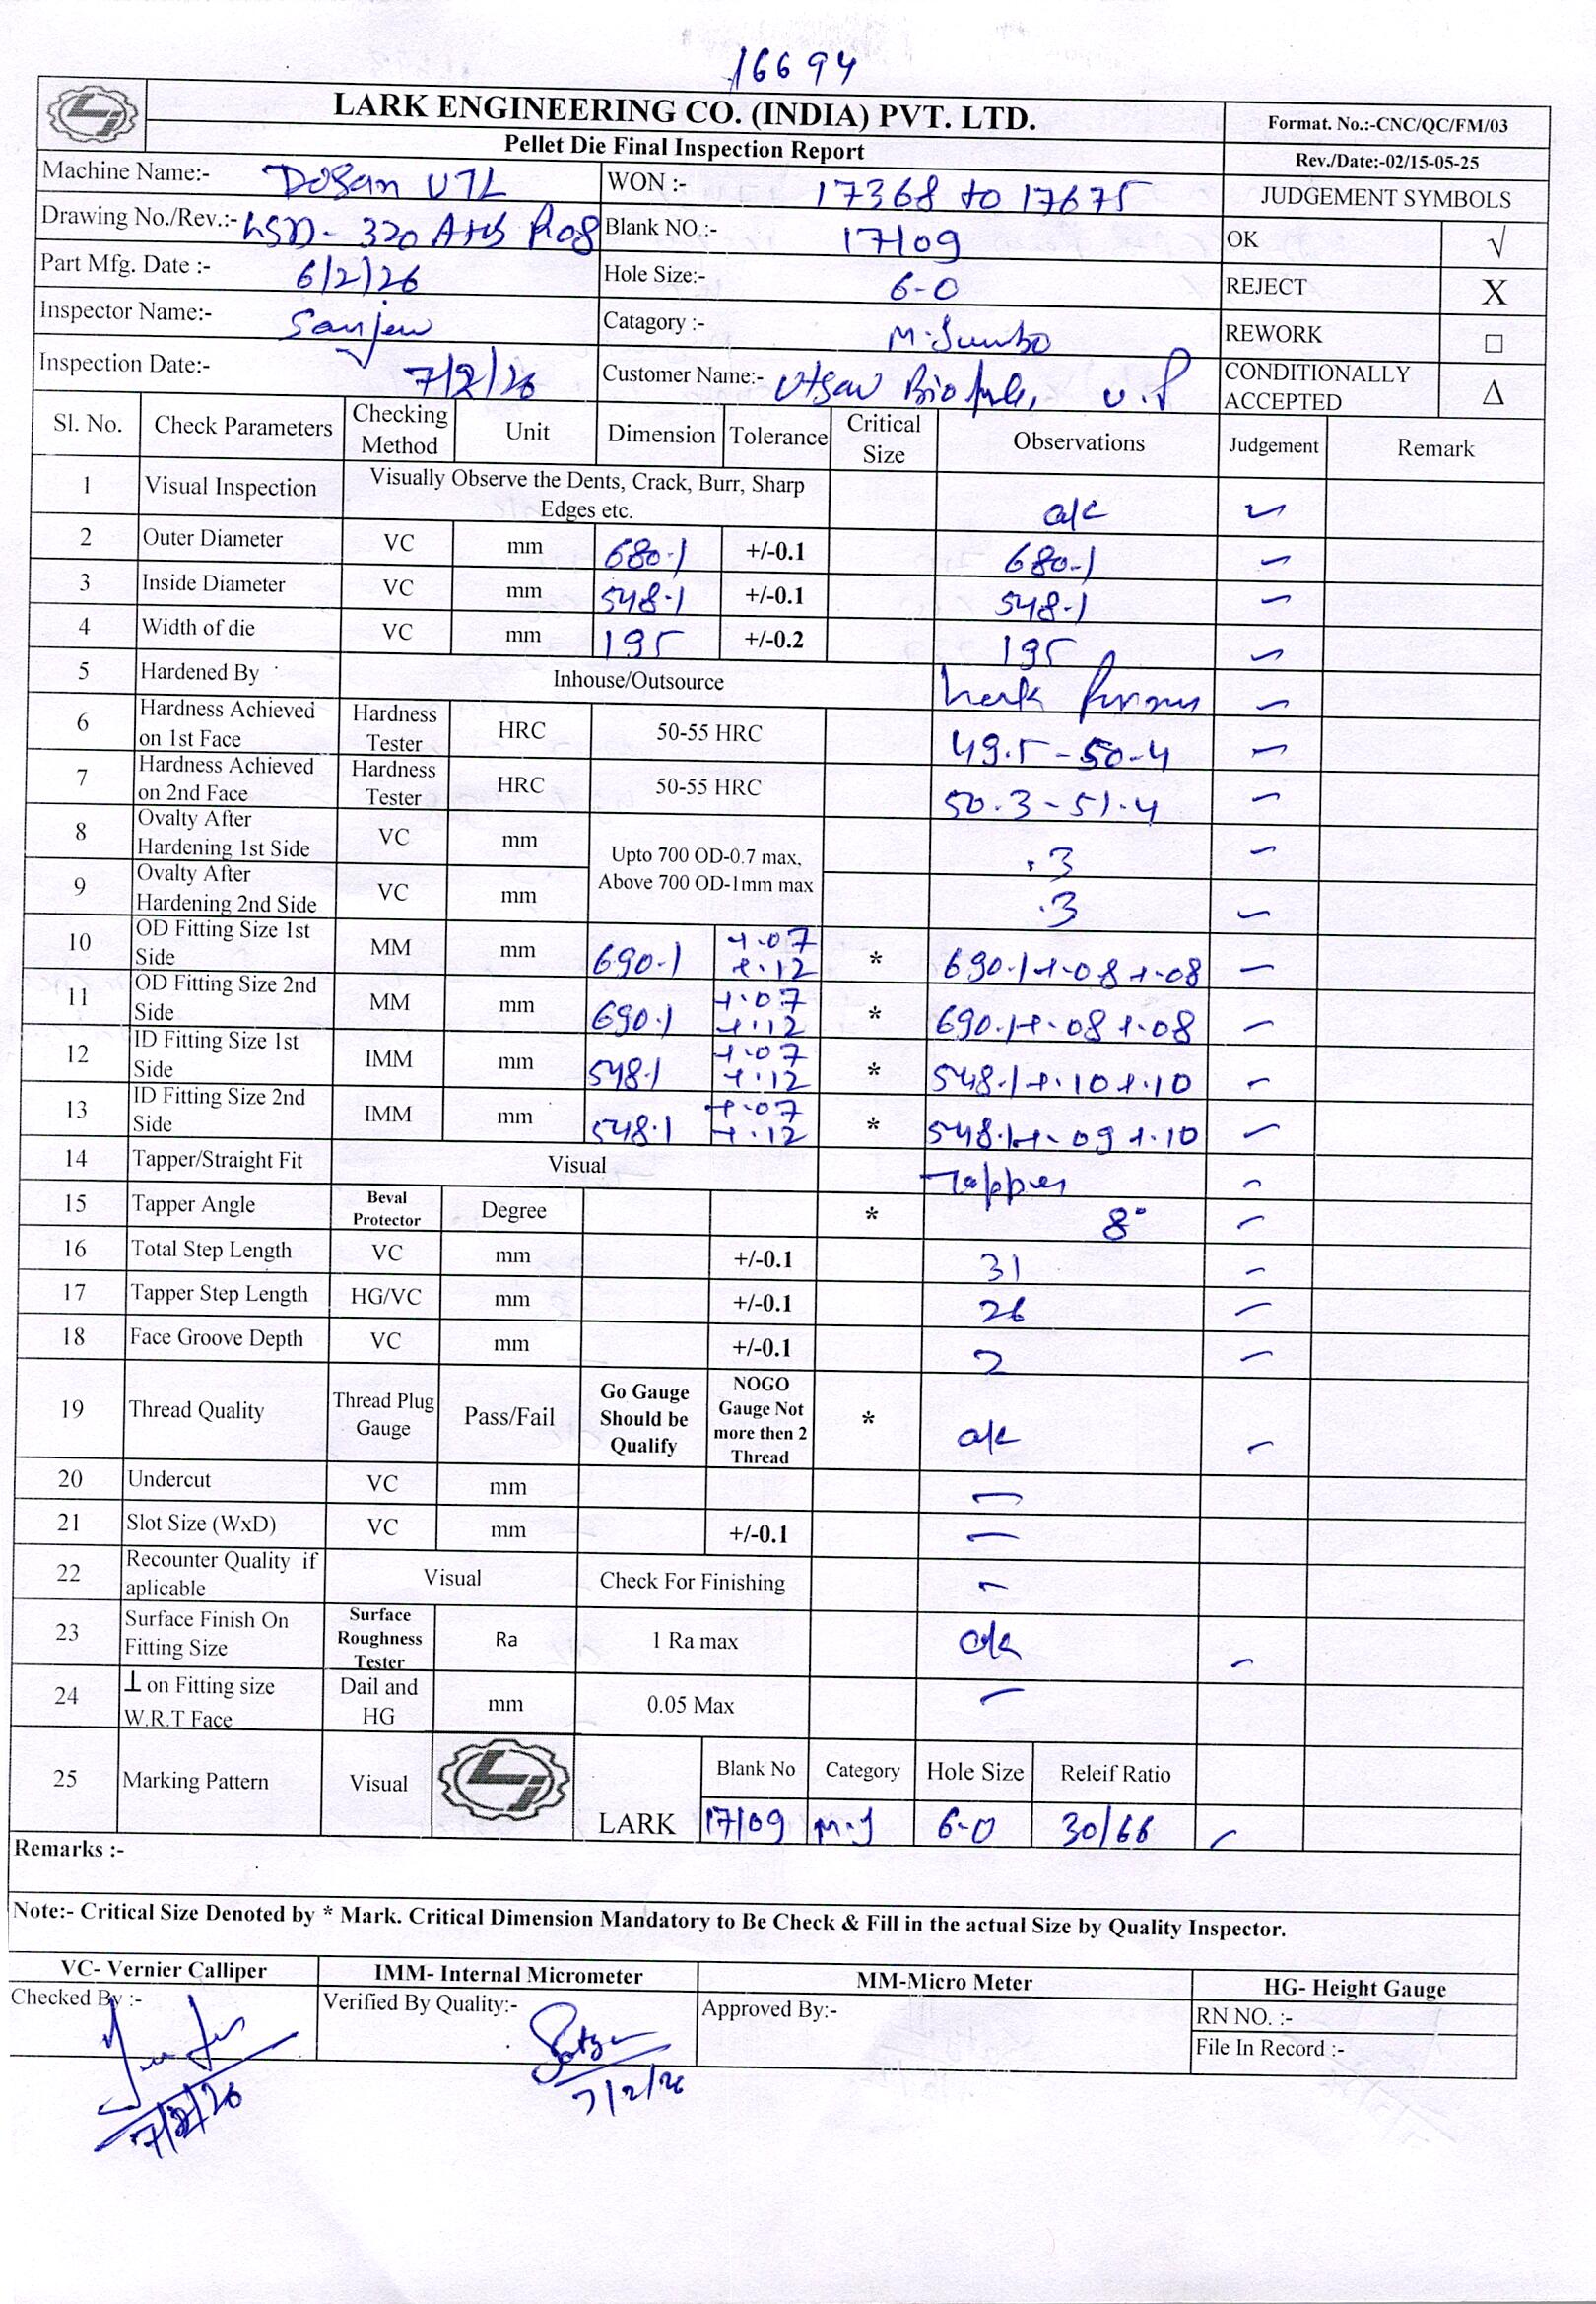 16694
LARK ENGINEERING CO. (INDIA) PVT. LTD.
Format. No.:-CNC/QC/FM/03
Pellet Die Final Inspection Report
Rev./Date:-02/15-05-25
Machine Name:- Dosan VTL WON :- 17368 to 17675 JUDGEMENT SYMBOLS
Drawing No./Rev.:- LSD- 320 R08 Blank NO.:- 17/09 OK √
Part Mfg. Date :- 6/2/26 Hole Size:- 6-0 REJECT X
Inspector Name:- Sanjeev Catagory :- M.Jumbo REWORK □
Inspection Date:- 7/2/26 Customer Name:- Utsav U.P CONDITIONALLY ACCEPTED Δ
Sl. No. Check Parameters Checking Method Unit Dimension Tolerance Critical Size Observations Judgement Remark
1 Visual Inspection Visually Observe the Dents, Crack, Burr, Sharp Edges etc. ok
2 Outer Diameter VC mm 680.1 +/-0.1 680.1
3 Inside Diameter VC mm 548.1 +/-0.1 548.1
4 Width of die VC mm 195 +/-0.2 195
5 Hardened By Inhouse/Outsource Lark
6 Hardness Achieved on 1st Face Hardness Tester HRC 50-55 HRC 49.5-50.4
7 Hardness Achieved on 2nd Face Hardness Tester HRC 50-55 HRC 50.3-51.4
8 Ovalty After Hardening 1st Side VC mm Upto 700 OD-0.7 max, Above 700 OD-1mm max .3
9 Ovalty After Hardening 2nd Side VC mm .3
10 OD Fitting Size 1st Side MM mm 690.1 +.07 +.12 * 690.1+.08 +.08
11 OD Fitting Size 2nd Side MM mm 690.1 +.07 +.12 * 690.1+.08 +.08
12 ID Fitting Size 1st Side IMM mm 548.1 +.07 +.12 * 548.1+.10+.10
13 ID Fitting Size 2nd Side IMM mm 548.1 +.07 +.12 * 548.1+.09+.10
14 Tapper/Straight Fit Visual Tapper
15 Tapper Angle Beval Protector Degree * 8°
16 Total Step Length VC mm +/-0.1 31
17 Tapper Step Length HG/VC mm +/-0.1 26
18 Face Groove Depth VC mm +/-0.1 2
19 Thread Quality Thread Plug Gauge Pass/Fail Go Gauge Should be Qualify NOGO Gauge Not more then 2 Thread * ok
20 Undercut VC mm —
21 Slot Size (WxD) VC mm +/-0.1 —
22 Recounter Quality if aplicable Visual Check For Finishing —
23 Surface Finish On Fitting Size Surface Roughness Tester Ra 1 Ra max ok
24 ⊥ on Fitting size W.R.T Face Dail and HG mm 0.05 Max —
25 Marking Pattern Visual LARK Blank No Category Hole Size Releif Ratio
17/09 M.J 6-0 30/66
Remarks :-
Note:- Critical Size Denoted by * Mark. Critical Dimension Mandatory to Be Check & Fill in the actual Size by Quality Inspector.
VC- Vernier Calliper IMM- Internal Micrometer MM-Micro Meter HG- Height Gauge
Checked By :- Verified By Quality:- Approved By:- RN NO. :-
File In Record :-
7/2/26 7/2/26